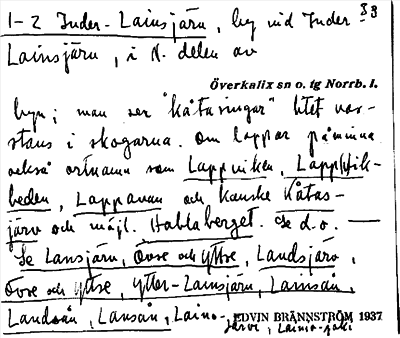 1-2 Inder-Lainsjärv, by vid Inder
Lainsjärv, i N. delen av
Överkalix sn o. tg Norrb. l.
byn; man ser "kåtaringar" litet var-
stans i skogarna. Om lappar påminna
också ortnamn som Lappviken, Lapp
heden, Lappavan och kanske Kåtas-
järv och möjl. Habbaberget. Se d.o. —
Se Lansjärv, Övre och Yttre, Landsjärv,
Övre och Yttre, Ytter-Lainsjärv, Lainsån,
Landsån, Lansån, Laino-
järvi, Laino-joki
EDVIN BRÄNNSTRÖM 1937